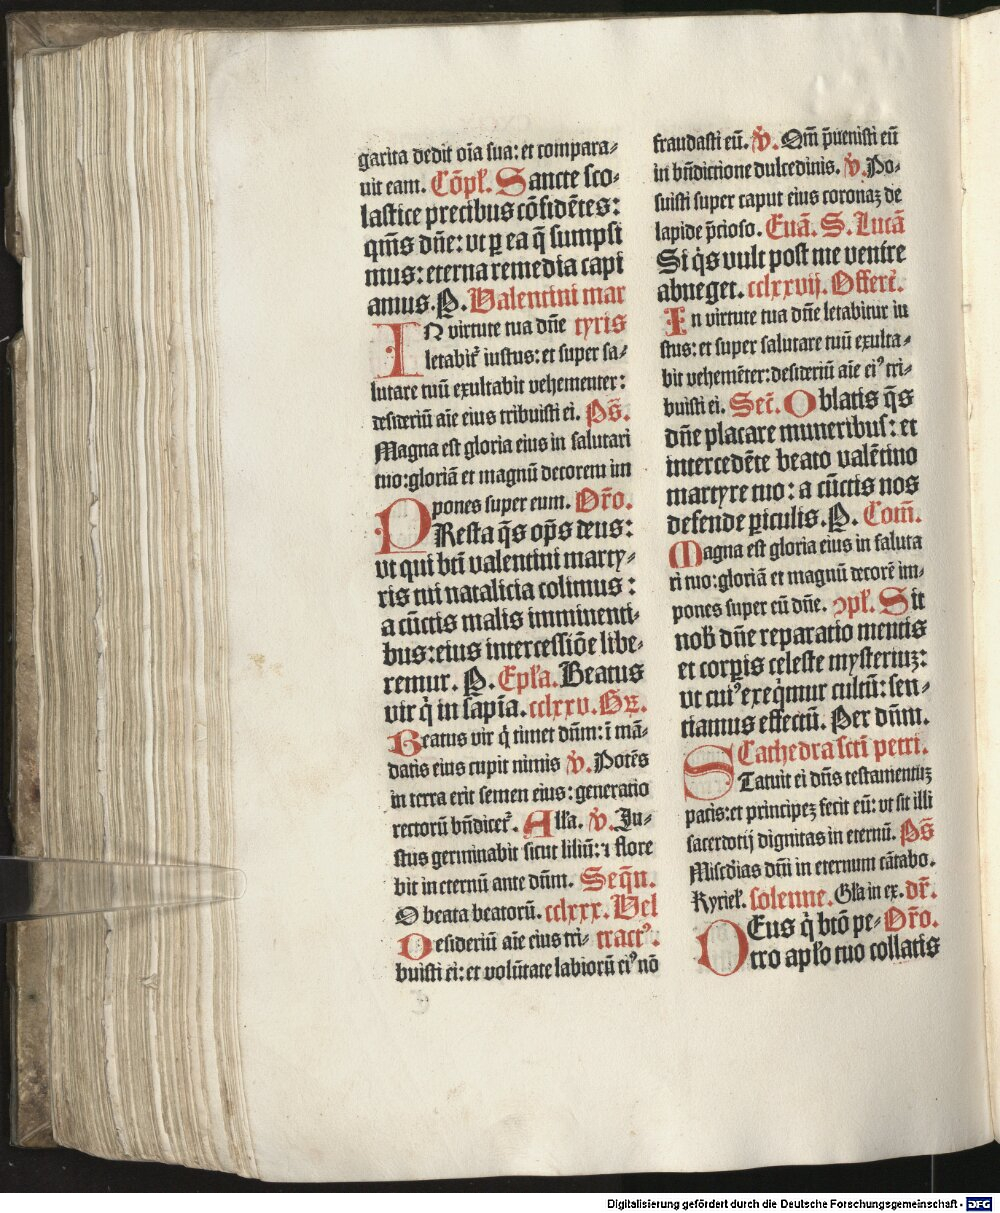 garita dedit oīa sua: et compara⸗
uit eam. Cōpł. Sancte sco⸗
lastice precibus cōfidētes:
qm̄s dn̄e: vt ꝑ ea q̄ sumpsi
mus: eterna remedia capi
amus. P. Valentini mar
IN virtute tua dn̄e tyris
letabit᷒ iustus: et super sa⸗
lutare tuū exultabit vehementer:
desideriū aīe eius tribuisti ei. Ps̄.
Magna est gloria eius in salutari
tuo: gloriā et magnū decorem im
pones super eum. Or̄o.
PResta q̄s op̄s deus:
vt qui bt̄i valentini marty⸗
ris tui natalicia colimus:
a cūctis malis imminenti⸗
bus: eius intercessiōe libe⸗
remur. P. Epl̄a. Beatus
vir q̇ in sapīa. cclxxv. Gr̄.
Beatus vir q̇ timet dn̄m: ī mā⸗
datis eius cupit nimis v̇. Potēs
in terra erit semen eius: generatio
rectorū bn̄dicet᷒. Alla. v̇. Ju⸗
stus germinabit sicut liliū: ⁊ flore
bit in eternū ante dn̄m. Seqn̄.
O beata beatorū. cclxxx. Vel
Desideriū aīe eius tri⸗ tractꝰ.
buisti ei: et volūtate labiorū eiꝰ nō
fraudasti eū. v̇. Qm̄ p̄uenisti eū
in bn̄dictione dulcedinis. v̇. Po⸗
suisti super caput eius coronaʒ de
lapide p̄cioso. Euā. S. Lucā
Si q̇s vult post me venire
abneget. cclxxvij. Offert᷒.
In virtute tua dn̄e letabitur iu
stus: et super salutare tuū exulta⸗
bit vehemēter: desideriū aīe eiꝰ tri⸗
buisti ei. Sec̄. Oblatis q̄s
dn̄e placare muneribus: et
intercedēte beato valētino
martyre tuo: a cūctis nos
defende ꝑiculis. P. Com̄.
Magna est gloria eius in saluta
ri tuo: gloriā et magnū decorē im⸗
pones super eū dn̄e. ꝯpł. Sit
nob̄ dn̄e reparatio mentis
et corꝑis celeste mysteriuʒ:
vt cuiꝰ exeq̇mur cultū: sen⸗
tiamus effectū. Per dn̄m.
Cathedra scti petri.
STatuit ei dn̄s testamentuʒ
pacis: et principeʒ fecit eū: vt sit illi
sacerdotij dignitas in eternū. Ps̄
Mis̄cdias dn̄i in eternum cātabo.
Kyrieł. solenne. Gl̄a in ex. dr̄.
DEus q̇ btō pe⸗ Or̄o.
tro apl̄o tuo collatis
Digitalisierung gefördert durch die Deutsche Forschungsgemeinschaft - DFG